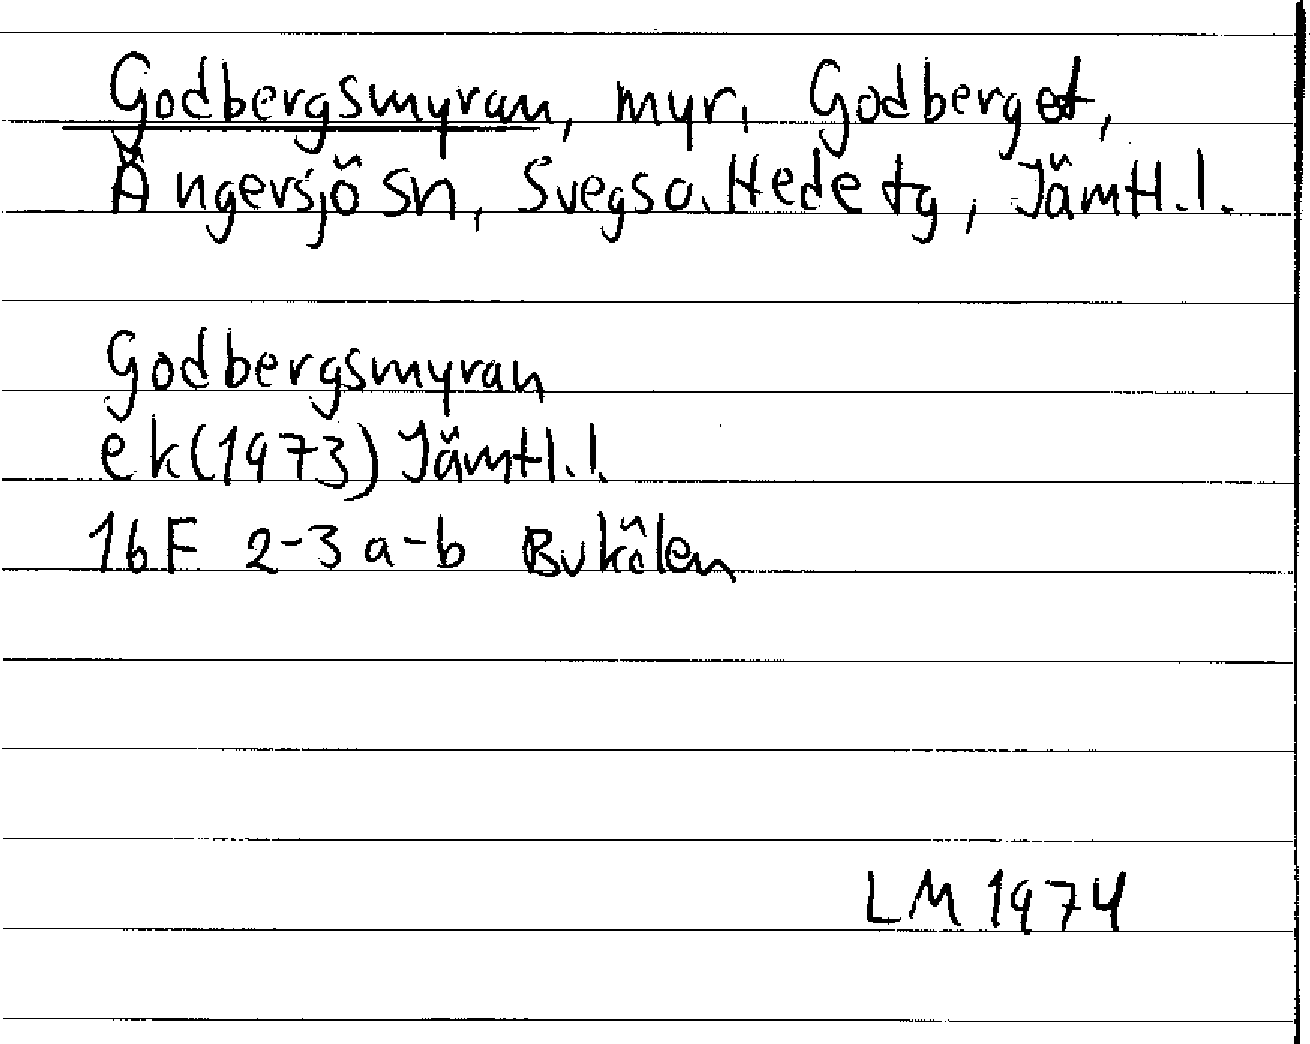 Godbergsmyran, myr, Godberget,
Ängersjö sn, Svegs o. Hede tg, Jämtl. l.
Godbergsmyran
ek (1973) Jämtl. l.
16F 2-3 a-b Bukälen
LM 1974